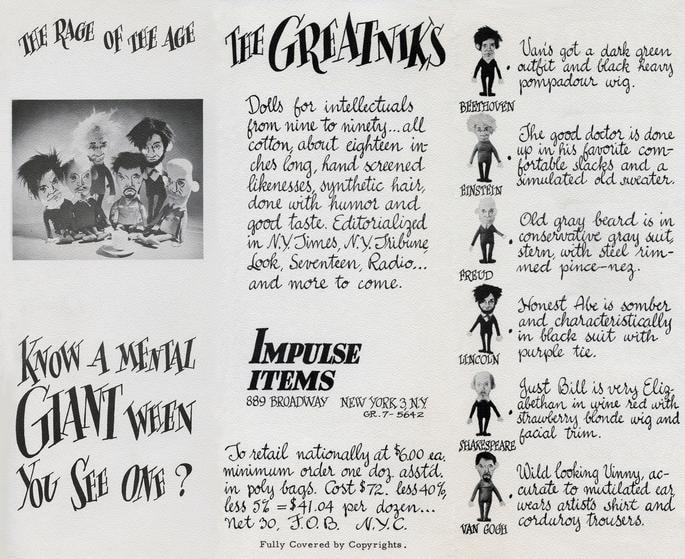 THE RAGE OF THE AGE
KNOW A MENTAL
GIANT WHEN
YOU SEE ONE?
THE GREATNIKS
Dolls for intellectuals
from nine to ninety...all
cotton, about eighteen in-
ches long, hand screened
likenesses, synthetic hair,
done with humor and
good taste. Editorialized
in N.Y. Times, N.Y. Tribune
Look, Seventeen, Radio...
and more to come.
IMPULSE
ITEMS
889 BROADWAY NEW YORK 3, N.Y.
GR. 7-5642
To retail nationally at $6.00 ea.
minimum order one doz asstd.
in poly bags. Cost $72. less 40%,
less 5% = $41.04 per dozen...
Net 30, F.O.B. N.Y.C.
Fully Covered by Copyrights.
BEETHOVEN
Van's got a dark green
outfit and black heavy
pompadour wig.
EINSTEIN
The good doctor is done
up in his favorite com-
fortable slacks and a
simulated old sweater.
FREUD
Old gray beard is in
conservative gray suit,
stern, with steel rim-
med pince-nez.
LINCOLN
Honest Abe is somber
and characteristically
in black suit with
purple tie.
SHAKESPEARE
Just Bill is very Eliz-
abethan in wine red with
strawberry blonde wig and
facial trim.
VAN GOGH
Wild looking Vinny, ac-
curate to mutilated ear
wears artists shirt and
corduroy trousers.